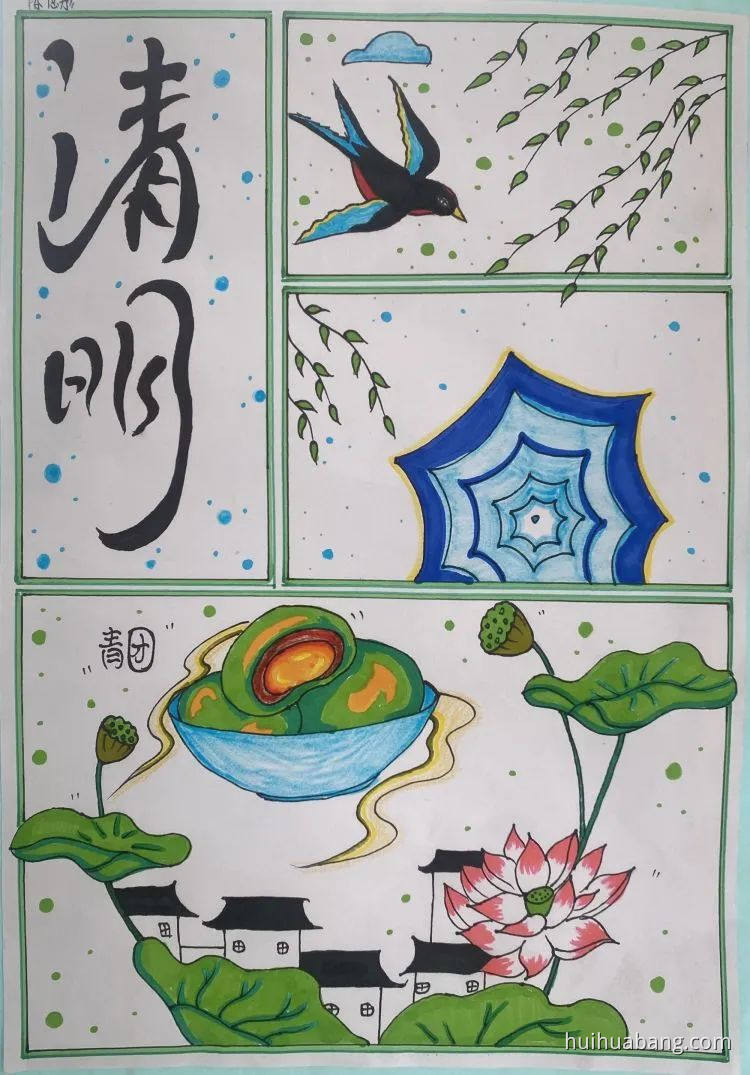 清明
青团
huihuabang.com